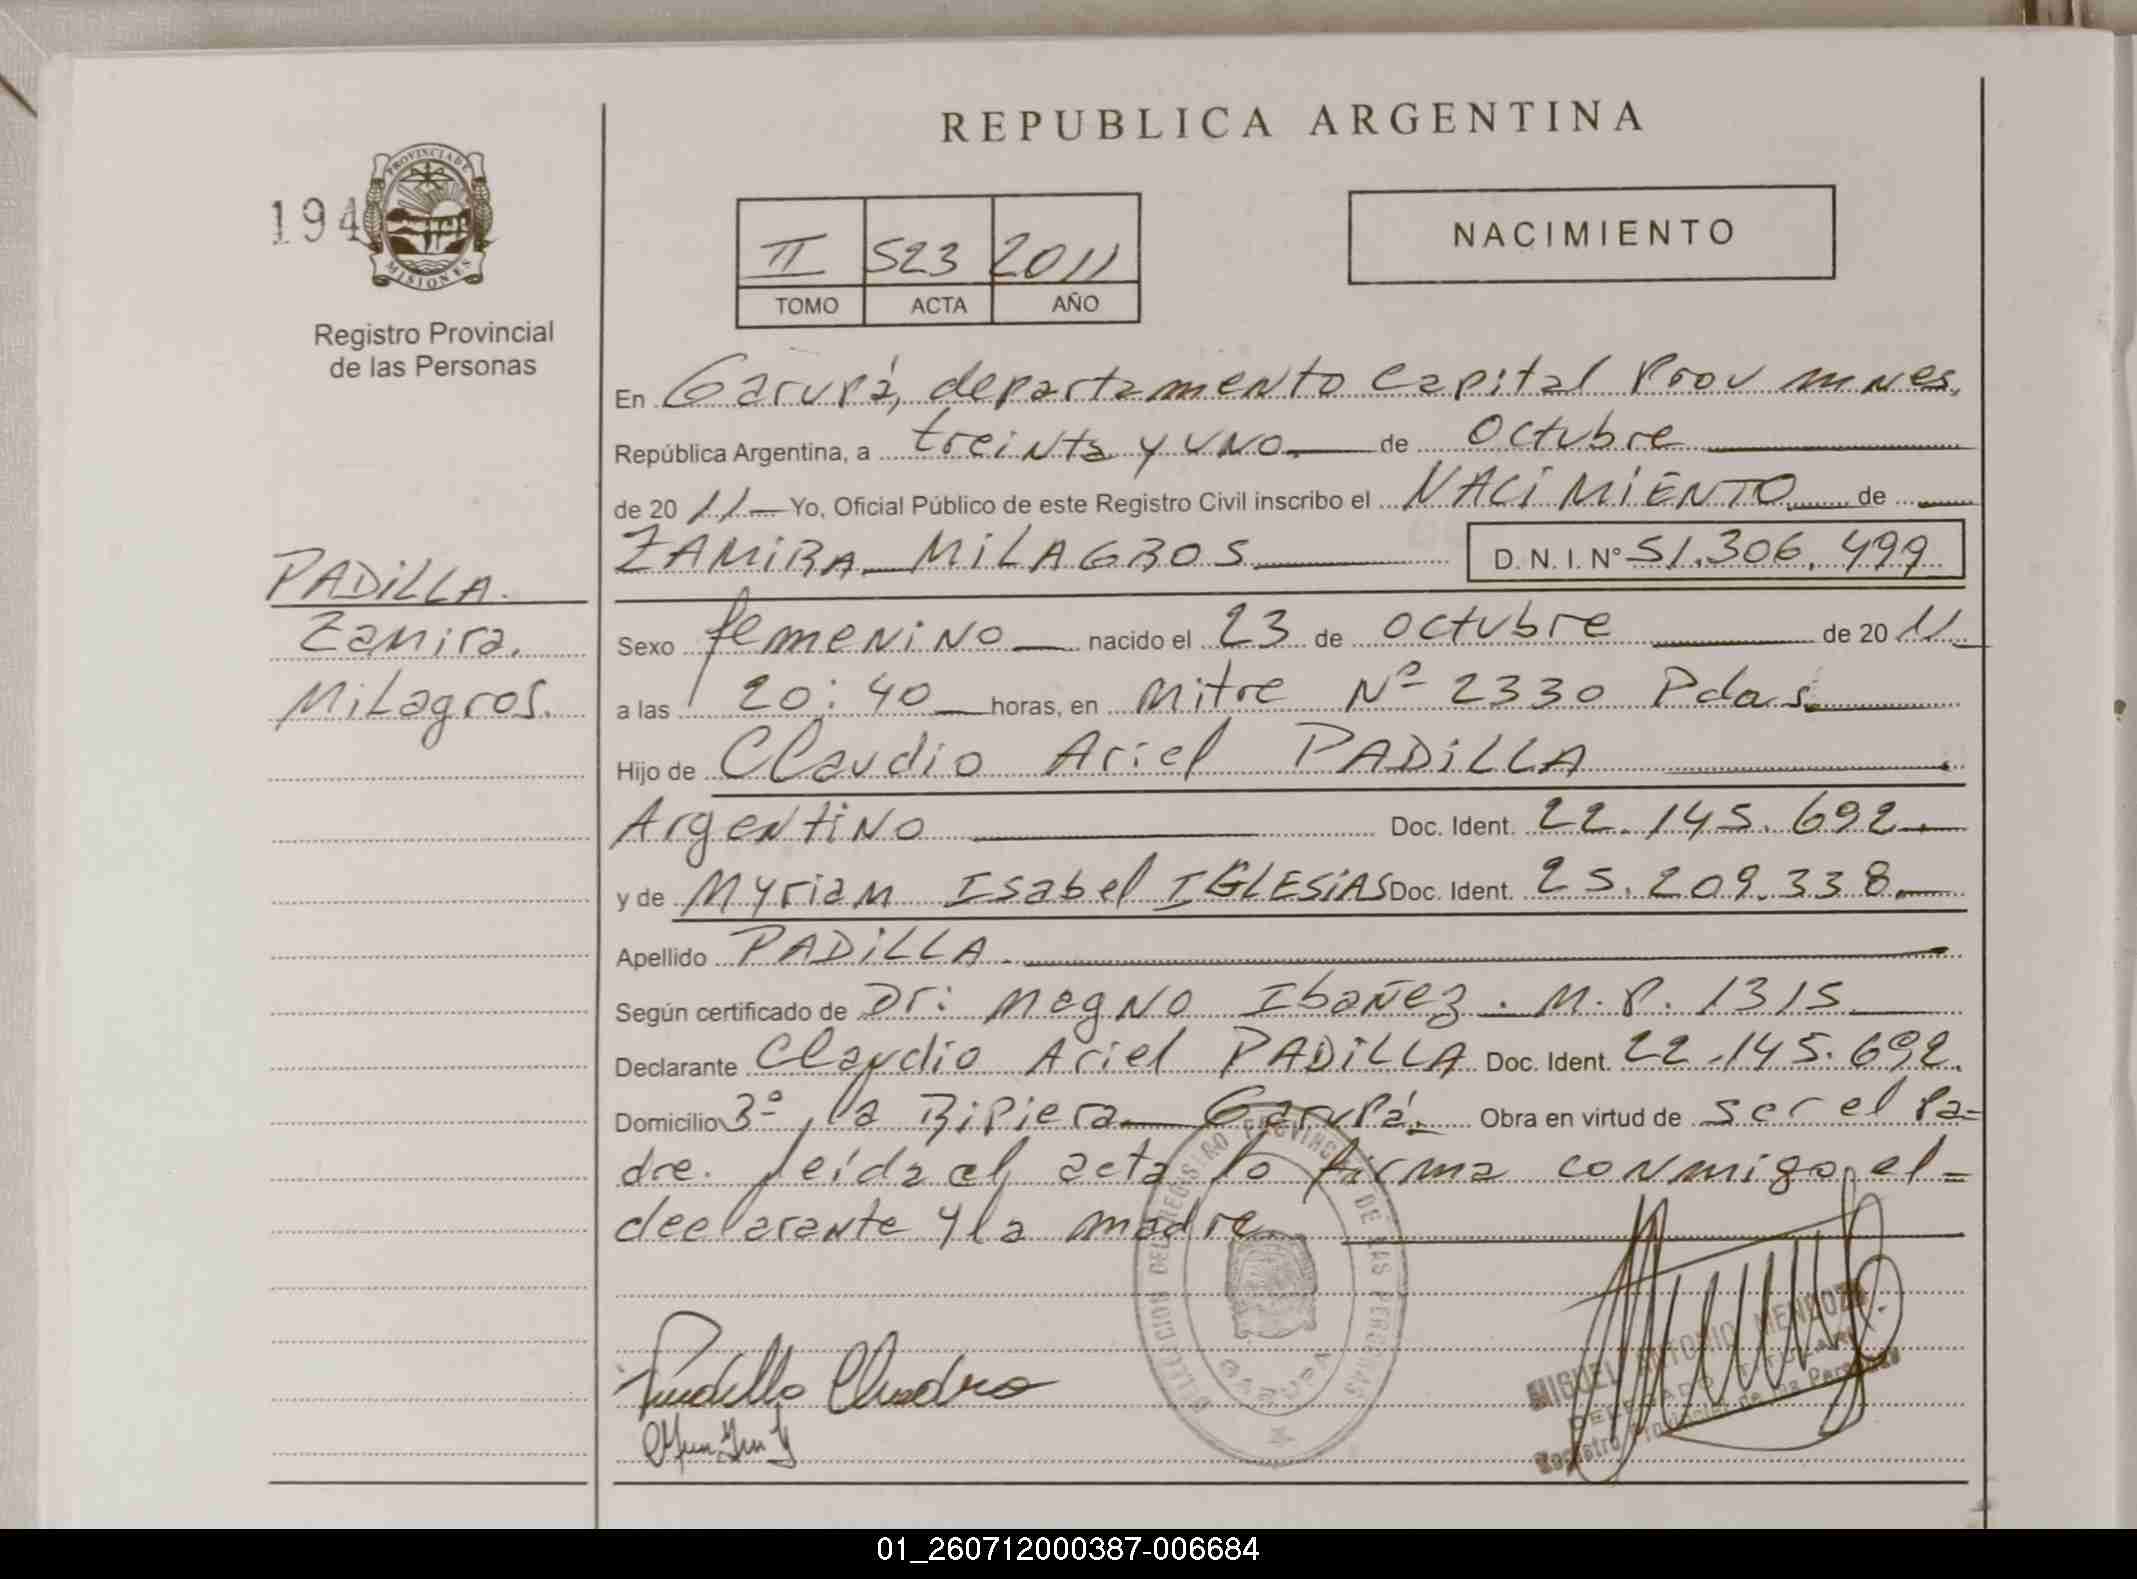 REPUBLICA ARGENTINA
194
PROVINCIA DE MISIONES
Registro Provincial
de las Personas
II 523 2011
TOMO ACTA AÑO
NACIMIENTO
En Garupá, departamento Capital Prov mnes,
República Argentina, a treinta y uno. de octubre
de 20 11 Yo, Oficial Público de este Registro Civil inscribo el NACIMIENTO de
ZAMIRA MILAGROS D. N. I. Nº 51.306.499
PADILLA.
Zamira.
Milagros.
Sexo femenino nacido el 23 de octubre de 20 11
a las 20:40 horas, en Mitre Nº 2330 Pdas.
Hijo de Claudio Ariel PADILLA
Argentino Doc. Ident. 22.145.692.
y de Myriam Isabel IGLESIAS Doc. Ident. 25.209.338.
Apellido PADILLA.
Según certificado de Dr: Magno Ibañez. M.P. 1315
Declarante Claudio Ariel PADILLA Doc. Ident. 22.145.692.
Domicilio Bº la Ripiera Garupá. Obra en virtud de ser el pa=
dre. leída el acta lo firma conmigo el=
declarante y la madre.
DELEGACION DEL REGISTRO PROVINCIAL DE LAS PERSONAS
GARUPA
MIGUEL ANTONIO MENDOZA
DELEGADO TITULAR
Registro Provincial de las Personas
01_260712000387-006684